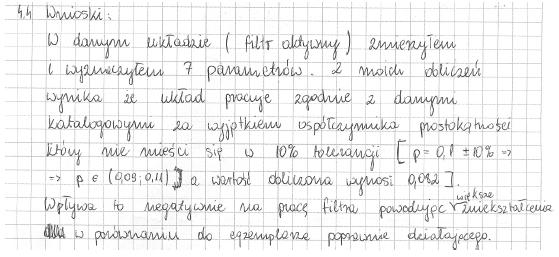 4.4 Wnioski:
W danym układzie ( filtr aktywny ) zmierzyłem
i wyznaczyłem 7 parametrów. Z moich obliczeń
wynika że układ pracuje zgodnie z danymi
katalogowymi za wyjątkiem współczynnika prostokątności
który nie mieści się w 10% tolerancji [ p = 0,1 ±10% =>
=> p ∈ (0,09; 0,11) a wartość obliczona wynosi 0,082 ].
Wpływa to negatywnie na pracę filtra powodując większe zniekształcenia
w porównaniu do egzemplarza poprawnie działającego.